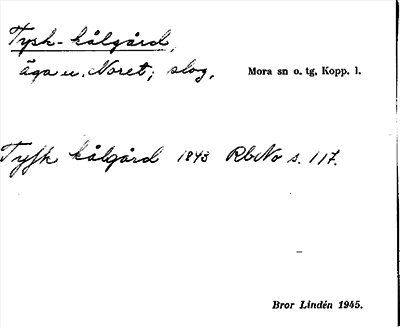 Tysk-kålgård,
äga u. Noret; slog.
Mora sn o. tg, Kopp. l.
Tyſk kålgård 1843 RbNo s. 117.
Bror Lindén 1945.